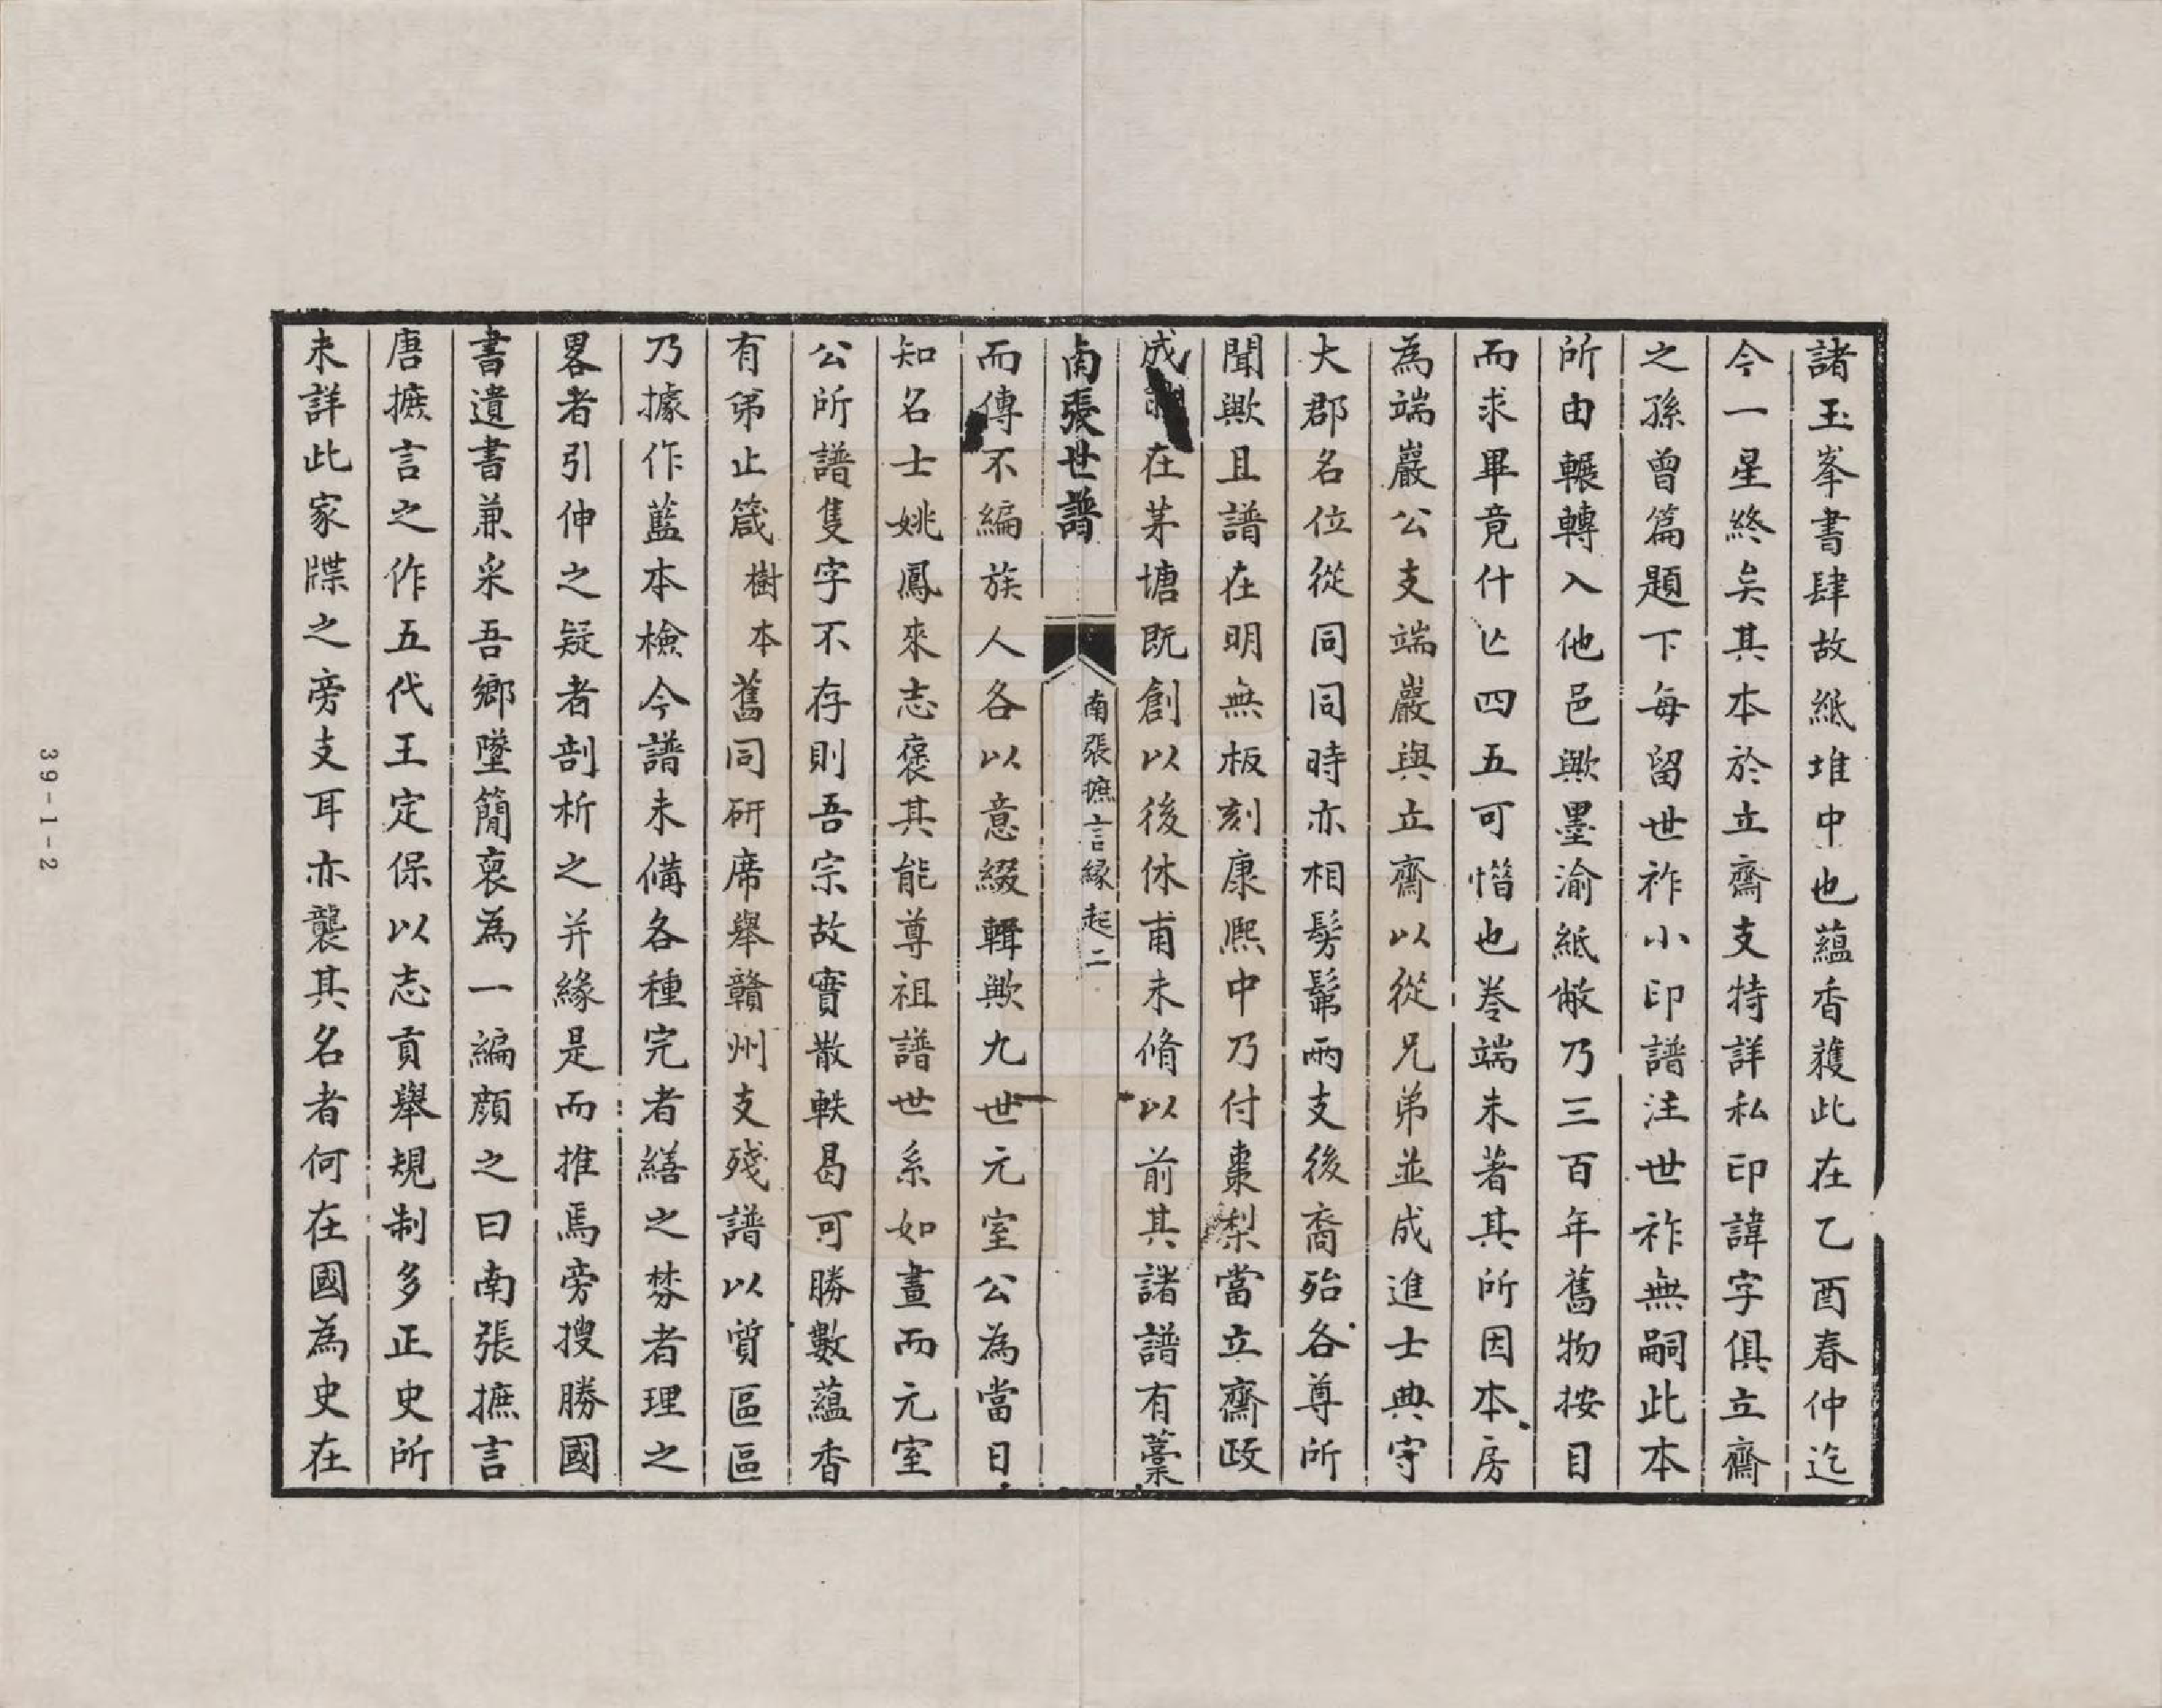 諸玉峯書肆故紙堆中也蘊香蒦此在乙酉春仲迄
今一星終矣其本於立齋支特詳私印諱字俱立齋
之孫曾篇題下每留世祚小印譜注世祚無嗣此本
所由輾轉入他邑歟墨渝紙敝乃三百年舊物按目
而求畢竟什亡四五可惜也卷端未著其所因本房
為端巖公支端巖與立齋以從兄弟並成進士典守
大郡名位從同同時亦相髣髴兩支後裔殆各尊所
聞歟且譜在明無板刻康熙中乃付棗梨當立齋政
成在茅塘既創以後休甫未脩以前其諸譜有藁
南張世譜
南張摭言緣起二
而傳不編族人各以意綴輯歟九世元室公為當日
知名士姚鳳來志褒其能尊祖譜世系如畫而元室
公所譜隻字不存則吾宗故實散軼曷可勝數蘊香
有弟止箴樹本舊同研席舉贛州支殘譜以質區區
乃據作藍本檢今譜未備各種完者繕之棼者理之
畧者引伸之疑者剖析之并緣是而推焉旁搜勝國
書遺書兼采吾鄉墜簡裒為一編顏之曰南張摭言
唐摭言之作五代王定保以志貢舉規制多正史所
未詳此家牒之旁支耳亦襲其名者何在國為史在
39-1-2